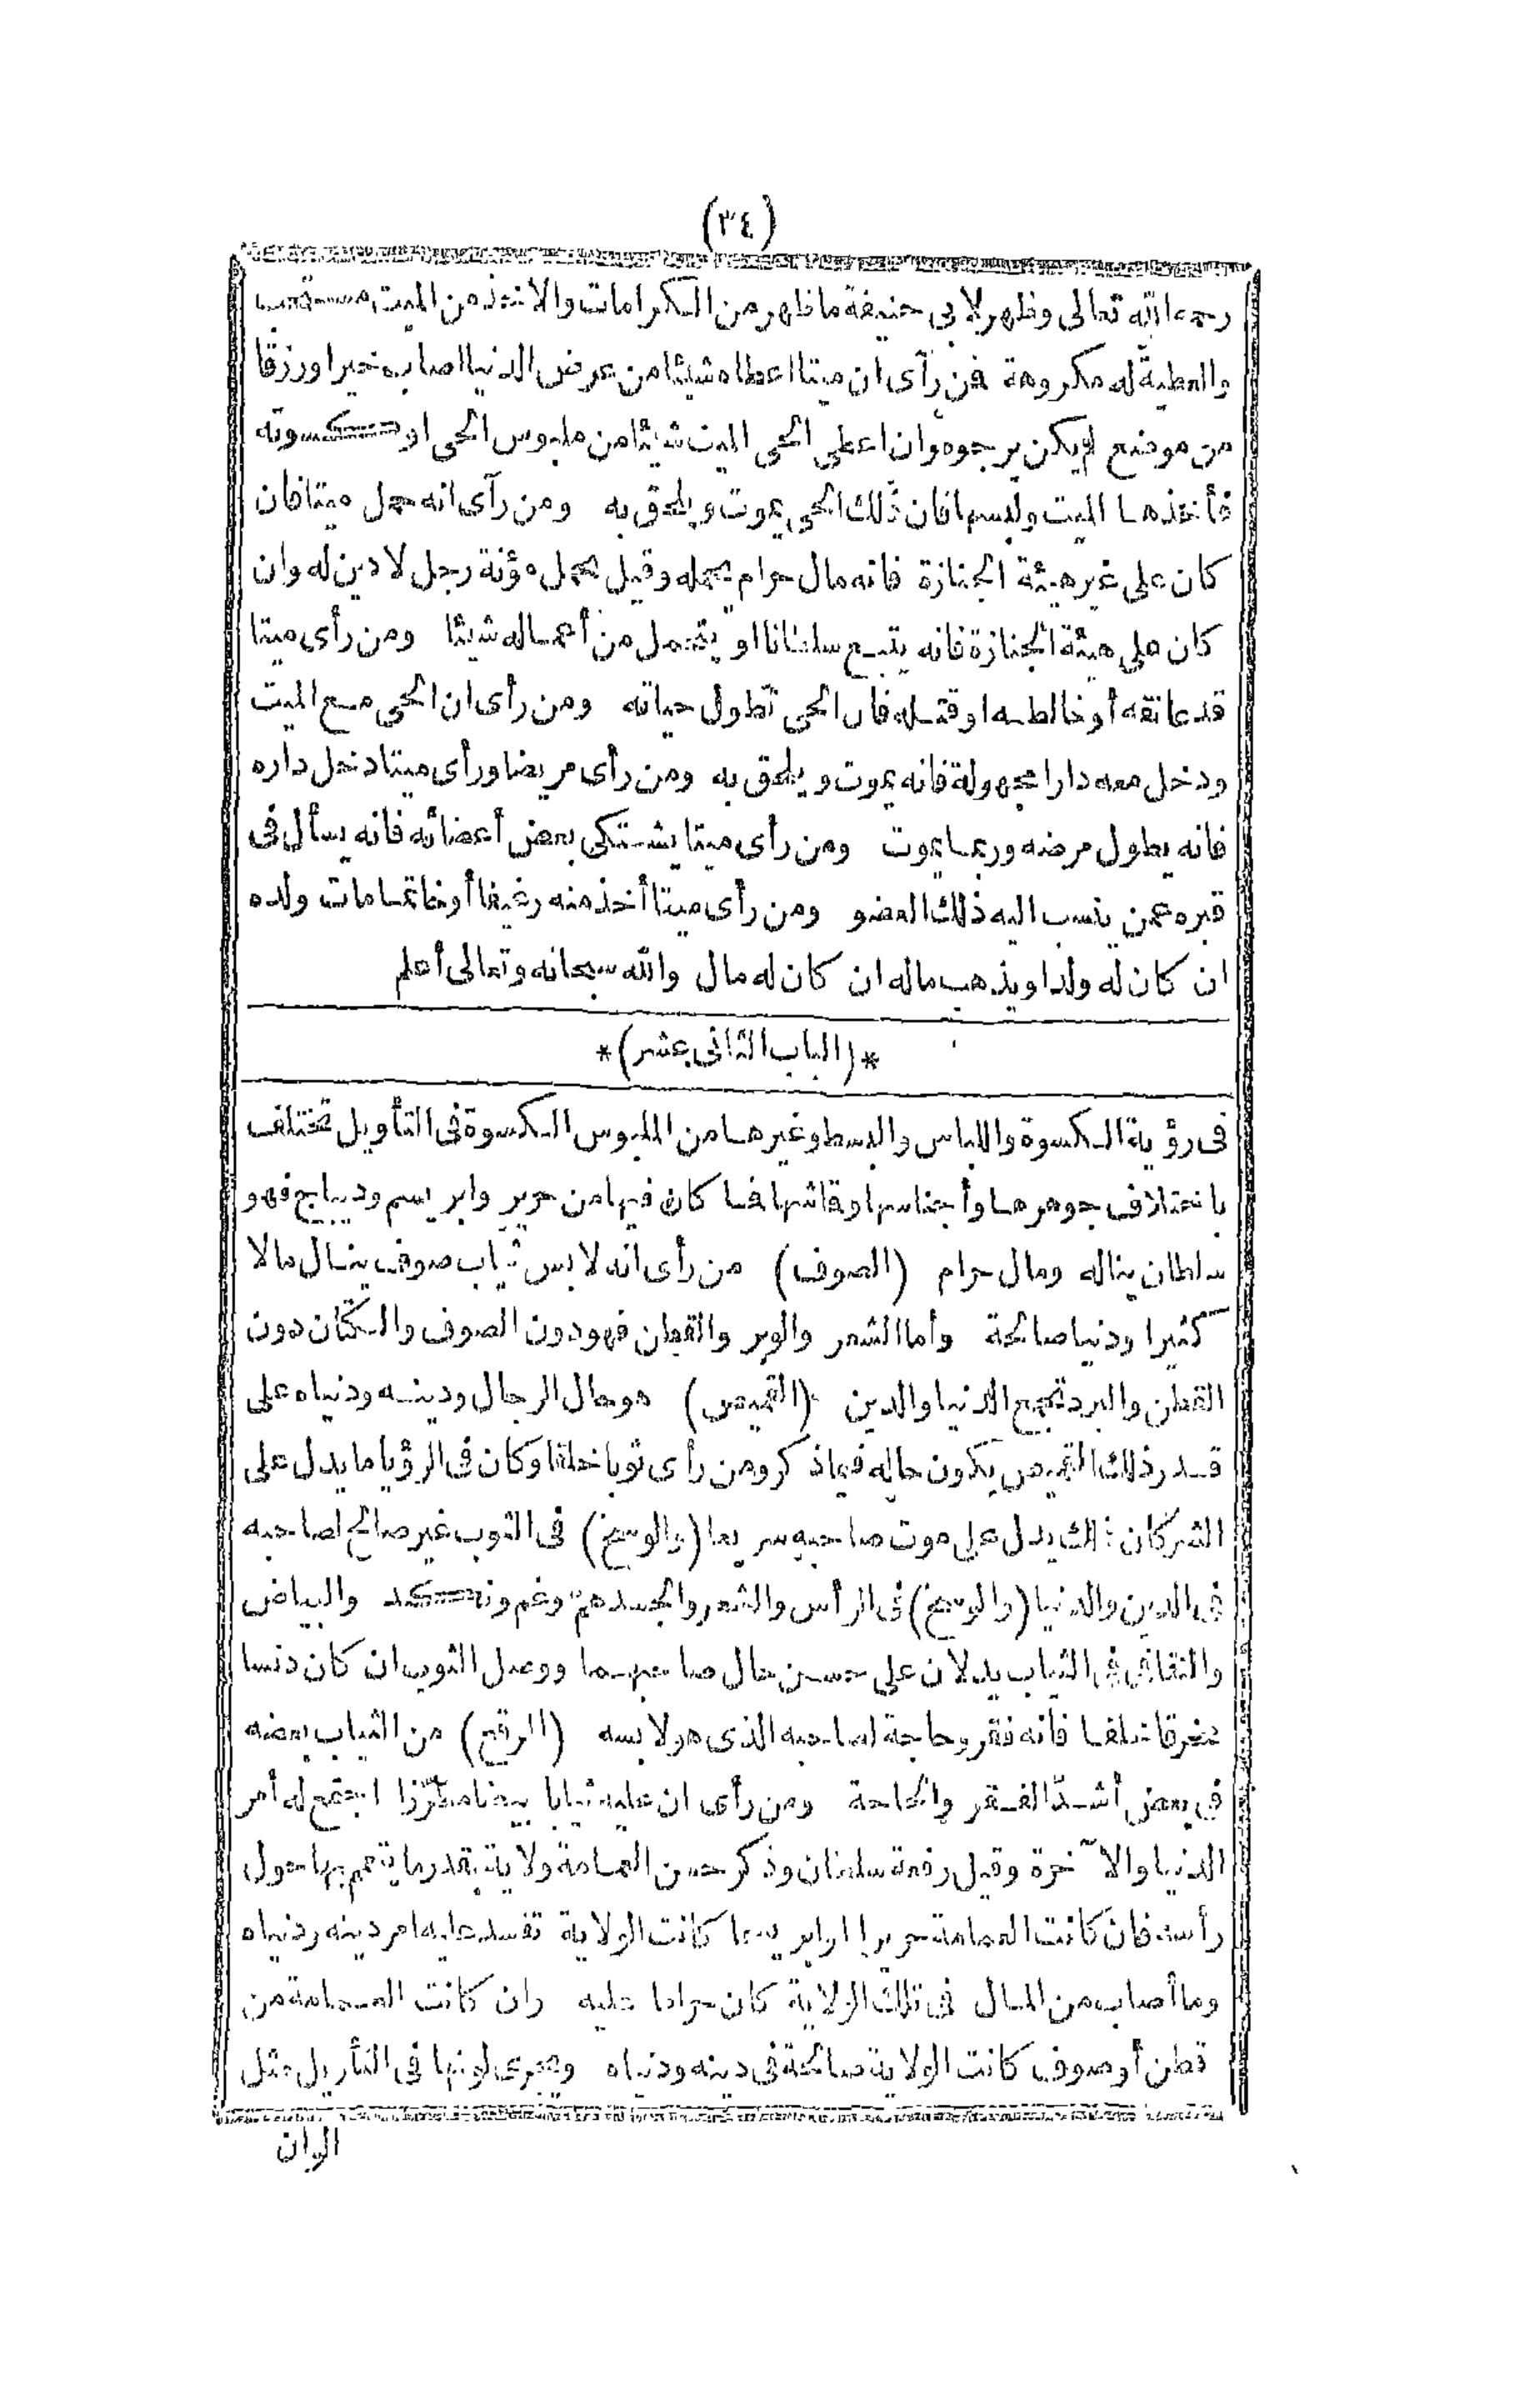 (٣٤)
رحمه الله تعالى وظهر لابى حنيفة ما ظهر من الكرامات والاخذ من الميت مستحب
والعطية له مكروهة فمن رأى ان ميتا اعطاه شيئا من عرض الدنيا اصابه خيرا ورزقا
من موضع لم يكن يرجوه وان اعطى الحى الميت شيئا من ملبوس الحى او كسوته
فأخذها الميت ولبسها فان ذلك الحى يموت ويلحق به ومن رآى انه حمل ميتا فان
كان على غير هيئة الجنازة فانه مال حرام يحمله وقيل يحمل مؤنة رجل لا دين له وان
كان على هيئة الجنازة فانه يتبع سلطانا او يتحمل من أعماله شيئا ومن رأى ميتا
قد عانقه أو خالطه او قتله فان الحى تطول حياته ومن رأى ان الحى مع الميت
ودخل معه دارا مجهولة فانه يموت ويلحق به ومن رأى مريضا ورأى ميتا دخل داره
فانه يطول مرضه وربما يموت ومن رأى ميتا يشتكى بعض أعضائه فانه يسأل فى
قبره عمن ينسب اليه ذلك العضو ومن رأى ميتا أخذ منه رغيفا أو خاتما مات ولده
ان كان له ولد او يذهب ماله ان كان له مال والله سبحانه وتعالى أعلم
*(الباب الثانى عشر)*
فى رؤية الكسوة واللباس والبسط وغيرها من الملبوس الكسوة فى التأويل تختلف
باختلاف جوهرها وأجناسها وقاشها فما كان فيها من حرير وابريسم وديباج فهو
سلطان يناله ومال حرام (الصوف) من رأى انه لابس ثياب صوف ينال مالا
كثيرا ودنيا صالحة وأما الشعر والوبر والقطن فهو دون الصوف والكتان دون
القطن والبرد تجمع الدنيا والدين (القميص) هو حال الرجال ودينه ودنياه على
قدر ذلك القميص يكون حاله فيما ذكر ومن رأى ثوبا خلقا وكان فى الرؤيا ما يدل على
الشر كان ذلك يدل على موت صاحبه سريعا (والوسخ) فى الثوب غير صالح لصاحبه
فى الدين والدنيا (والوسخ) فى الرأس والشعر والجسد همّ وغم ونكد والبياض
والنقاء فى الثياب يدلان على حسن حال صاحبهما ووصل الثوب ان كان دنسا
مخرقا خلقا فانه فقر وحاجة لصاحبه الذى هو لابسه (الرقيع) من الثياب بعضه
فى بعض أشدّ الفقر والحاجة ومن رأى ان عليه ثيابا بيضا مطرّزا اجتمع له أمر
الدنيا والآخرة وقيل رفعة سلطان وذكر حسن العمامة ولاية بقدر ما يتعمم بها حول
رأسه فان كانت العمامة حريرا او ابريسما كانت الولاية تفسد عليه امر دينه ودنياه
وما أصاب من المال فى تلك الولاية كان حراما عليه وان كانت العمامة من
قطن أو صوف كانت الولاية صالحة فى دينه ودنياه ويجرى لونها فى التأويل مثل
الوان